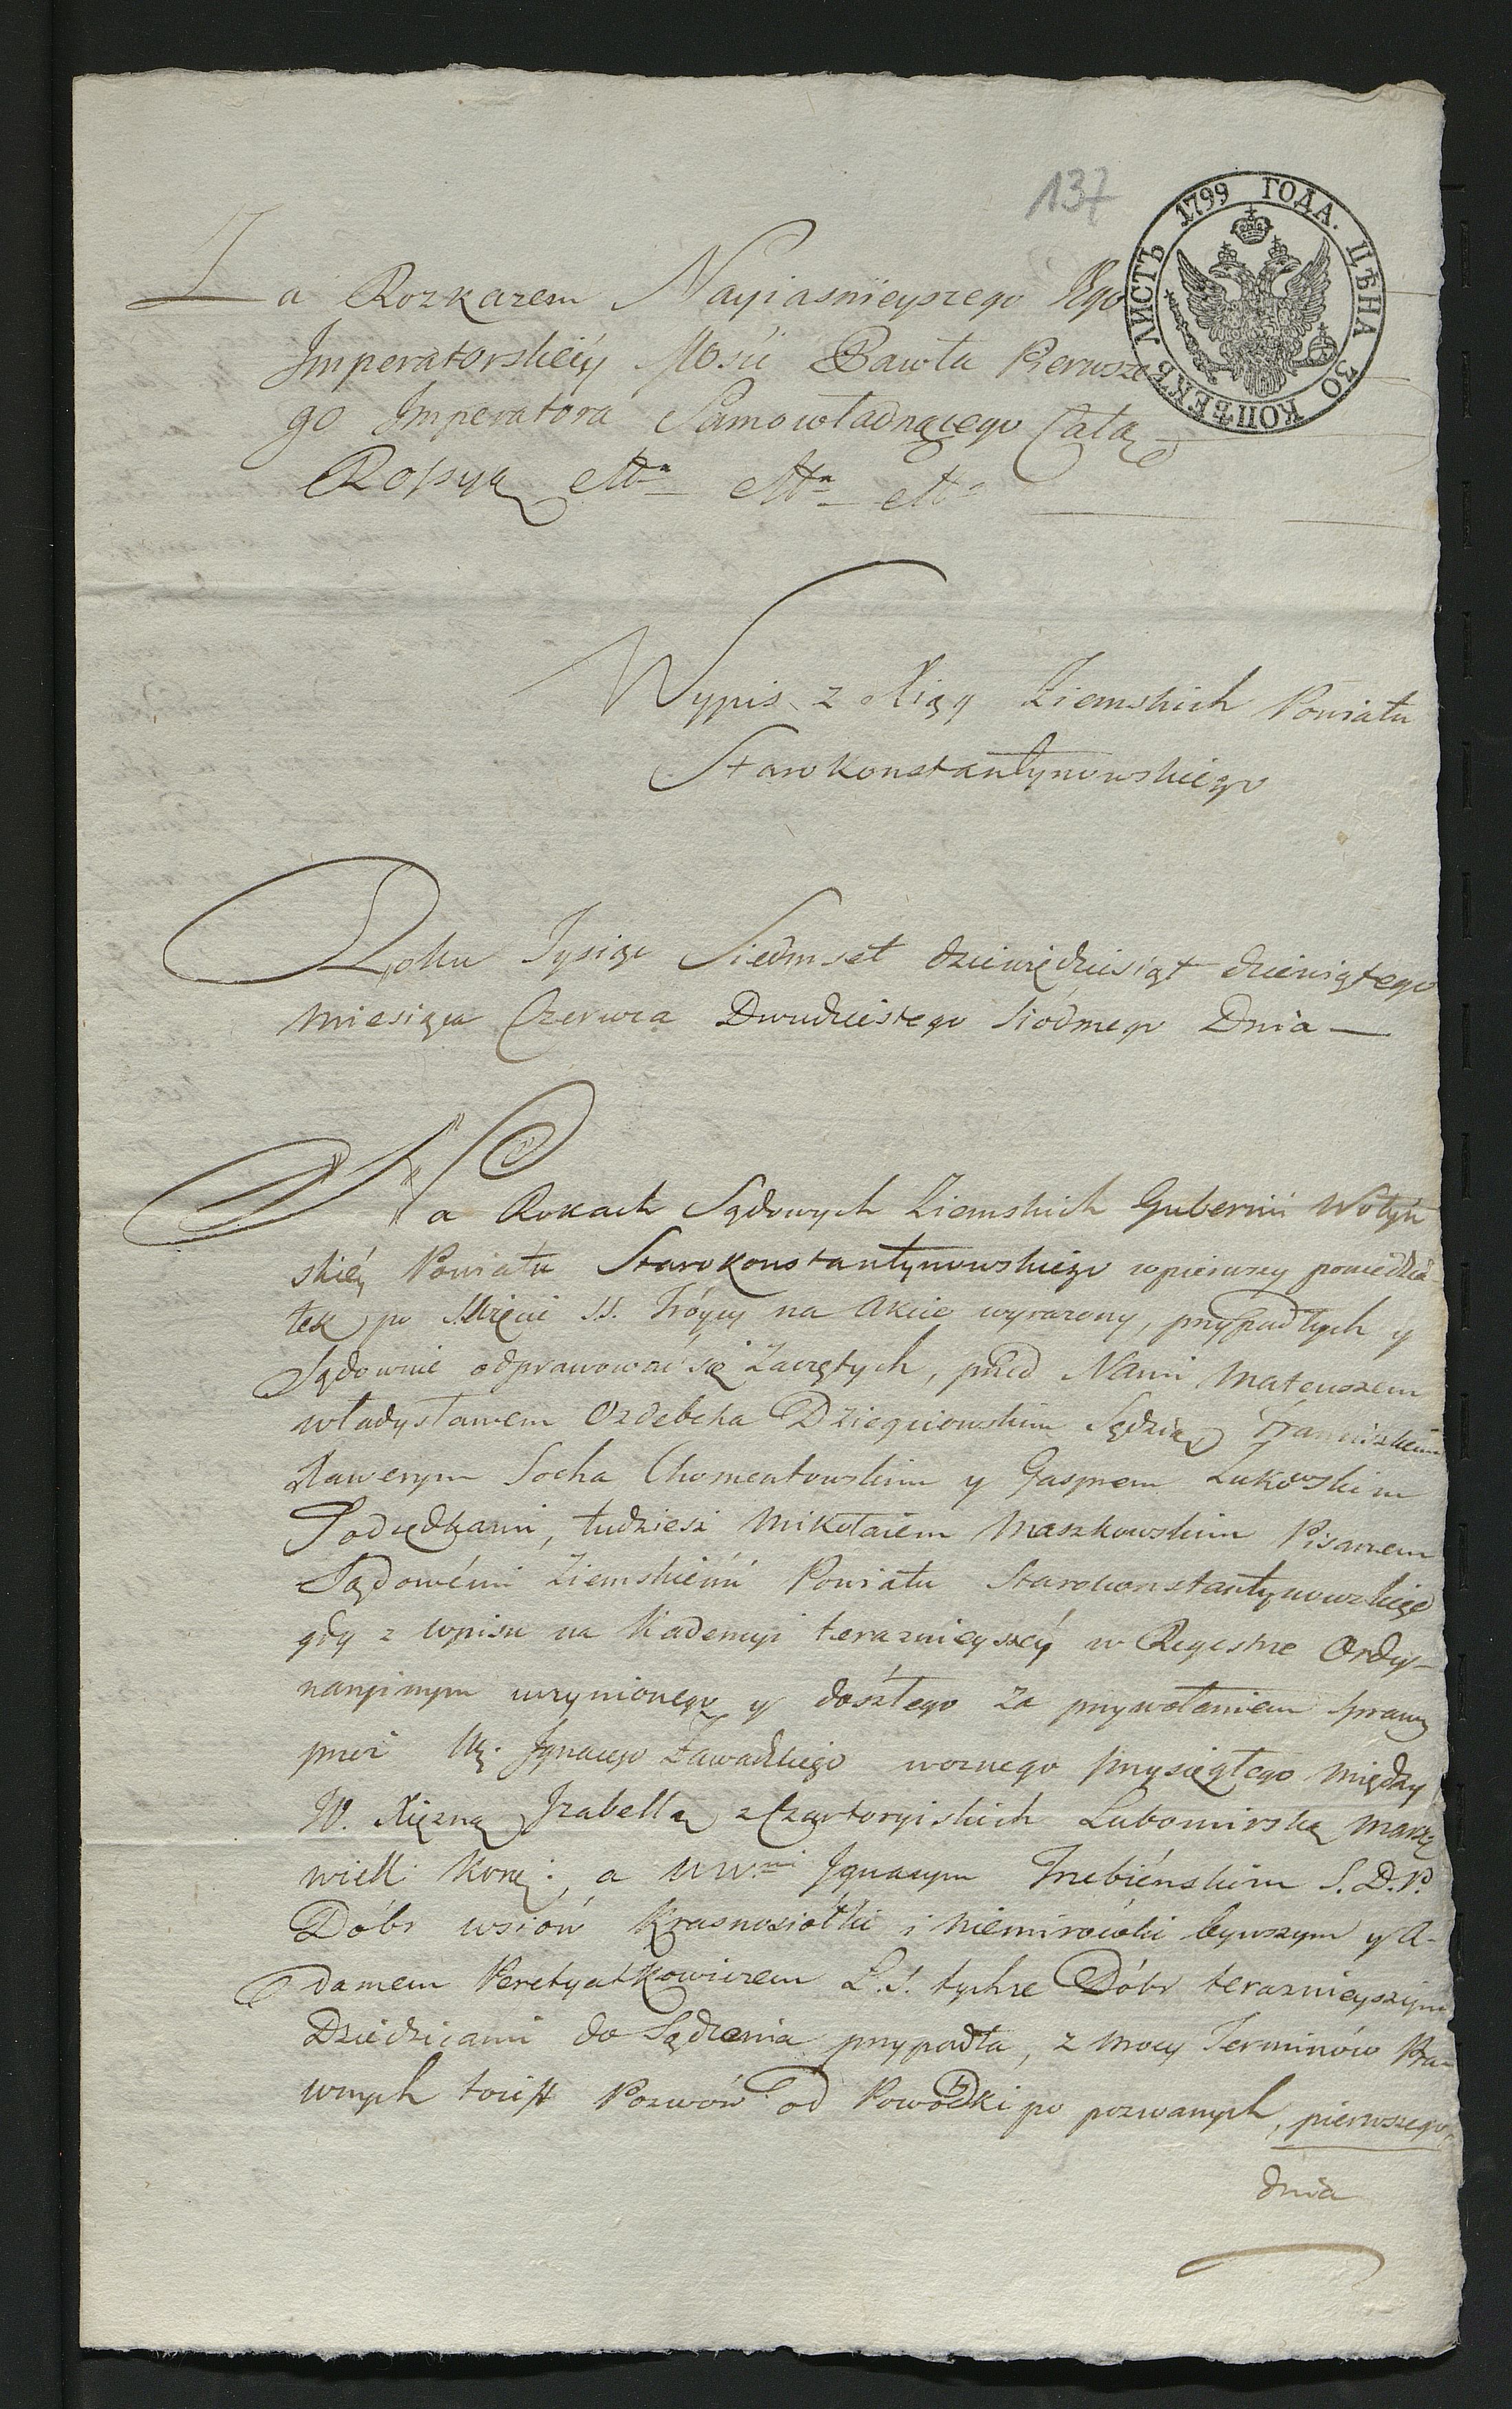 137
ЛИСТЪ 1799 ГОДА. ЦѢНА 30 КОПѢЕКЪ
Za Rozkazem Nayiasnieyszego Jego
Imperatorskieÿ Mosci Pawła Pierwsze
go Imperatora Samowładnącego Całą
Rossyą etta etta etta
Wypis z Xiąg Ziemskich Powiatu
Starokonstantynowskiego
Roku Tysiąc Siedmset dziewiędziesiąt dziewiątego
Miesiąca Czerwca Dwudziestego Siódmego Dnia —
Na Rokach Sądowych Ziemskich Gubernii Wołyń
skiéy Powiatu Starokonstantynowskiego w pierwszy poniedzia
łek po Święcie SS. Tróycy na Akcie wyrazony, przypadłych y
Sądownie odprawować się zaczętych, przed Nami Mateuszem
Władysławem Ozdebcha Dzieciowskim Sędzią Franciszkiem
Xawerym Socha Chomentowskim y Gasprem Zukowskim
Podsędkami, tudziesz Mikołaiem Maszkowskim Pisarzem
Sądowémi Ziemskiémi Powiatu Starokonstantynowskiego
gdy z wpisu na Kadencyi teraznieyszéy w Regestrze Ordy-
naryinym uczynionego y doszłego za przywołaniem sprawy
przez Ignacego Zawadzkiego woznego przysięgłego między
W. Xięzną Izabellą z Czartoryiskich Lubomirską Marsz
wiell: Korą: a WW.mi Ignacym Trzebieńskim S.D.P.
Dóbr wsiów Krasnosiołki i Niemirówki bywszym y A-
damem Peretyatkowiczem L.S. tychze Dóbr teraznieyszym
Dziedzicami do Sądzenia przypadła, z mocy Terminów Pra-
wnych toiest Pozwów od Powodki po pozwanych, pierwszego
dnia